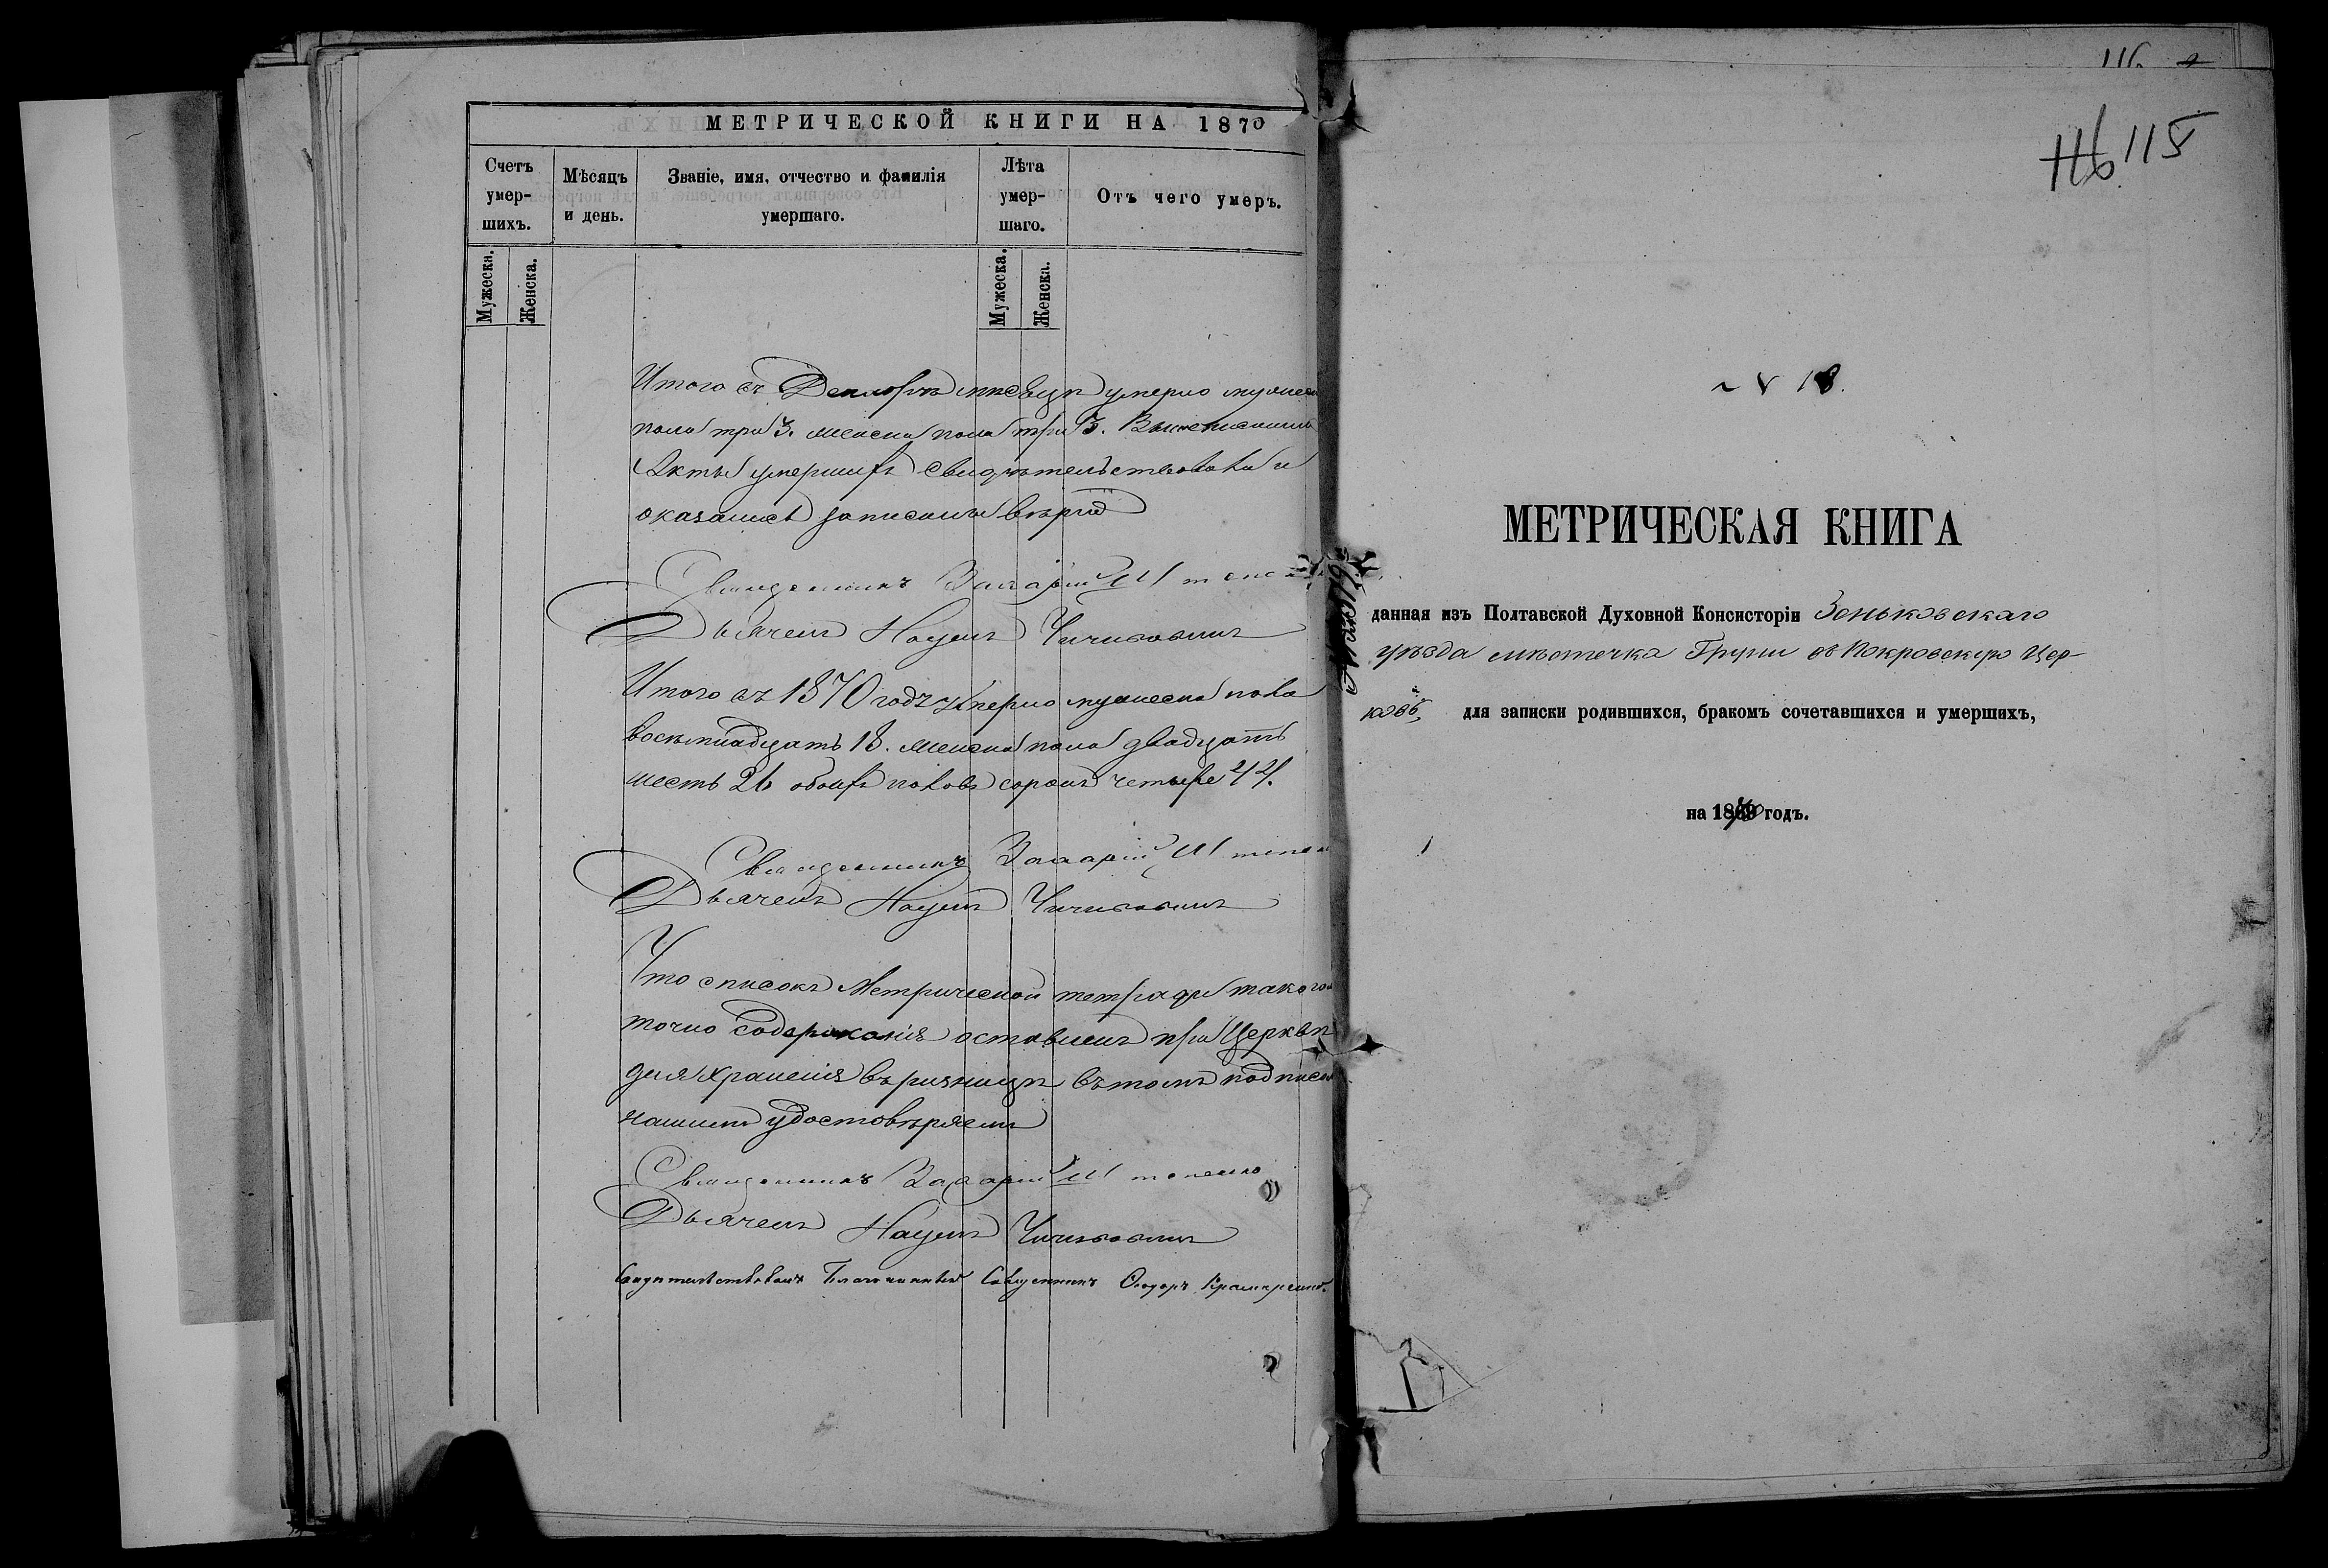 МЕТРИЧЕСКОЙ КНИГИ НА 1870
Счетъ умер-шихъ.
Мѣсяцъ и день.
Званіе, имя, отчество и фамилія умершаго.
Лѣта умер-шаго.
Отъ чего умеръ.
Мужеска.
Женска.
Мужеска.
Женска.
Итого въ Декабрѣ мѣсяцѣ умерло мужеска
пола три 3. женска пола три 3.
Акты умершихъ свидѣтельствовали и
оказались записаны вѣрно
Священникъ Захарій
Дьячекъ Наумъ
Итого въ 1870 годѣ умерло мужеска пола
восемнадцать 18. женска пола двадцать
шесть 26 обоихъ половъ сорокъ четыре 44.
Священникъ Захарій
Дьячекъ Наумъ
Что списокъ Метрической тетради такого
точно содержанія оставленъ при Церквѣ
для храненія въ ризницѣ въ томъ подписом
нашимъ удостовѣряемъ
Священникъ Захарій
Дьячекъ Наумъ
Свидѣтельствовалъ Благочинный Священникъ Ѳеодоръ
116
116 115
№ 18.
МЕТРИЧЕСКАЯ КНИГА
данная изъ Полтавской Духовной Консисторіи Зеньковскаго
уѣзда мѣстечка Груни въ Покровскую Цер-
ковь, для записки родившихся, бракомъ сочетавшихся и умершихъ,
на 1870 годъ.